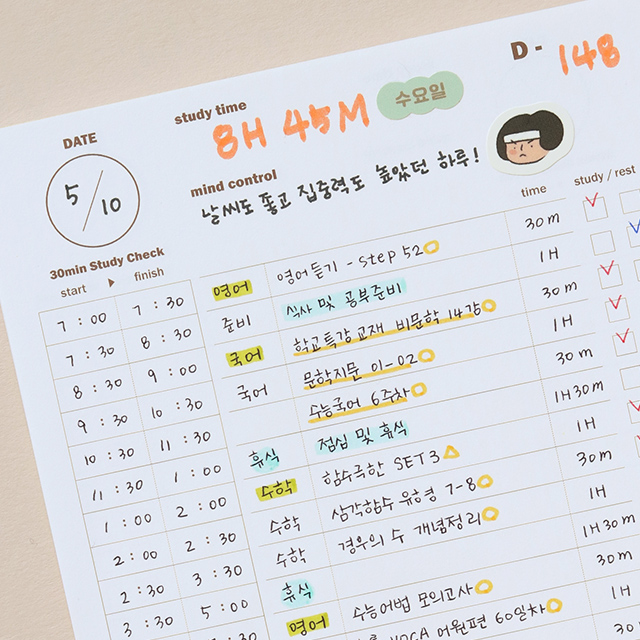 D - 148
study time
8H 45M 수요일
DATE
5/10
mind control
날씨도 좋고 집중력도 높았던 하루!
30min Study Check
start ▶ finish time study / rest
7:00 7:30 영어 영어듣기 - Step 52 30m
7:30 8:30 준비 식사 및 공부준비 1H
8:30 9:00 국어 학교특강 교재 비문학 14강 30m
9:30 10:30 국어 문학지문 01-02 1H
10:30 11:30 수능국어 6주차 30m
11:30 1:00 휴식 점심 및 휴식 1H30m
1:00 2:00 수학 함수극한 SET3 1H
2:00 2:30 수학 삼각함수 유형 7-8 30m
2:30 3:30 수학 경우의 수 개념정리 1H
3:30 5:00 휴식 1H30m
영어 수능어법 모의고사 30m
VOCA 어원편 60일차 1H
30